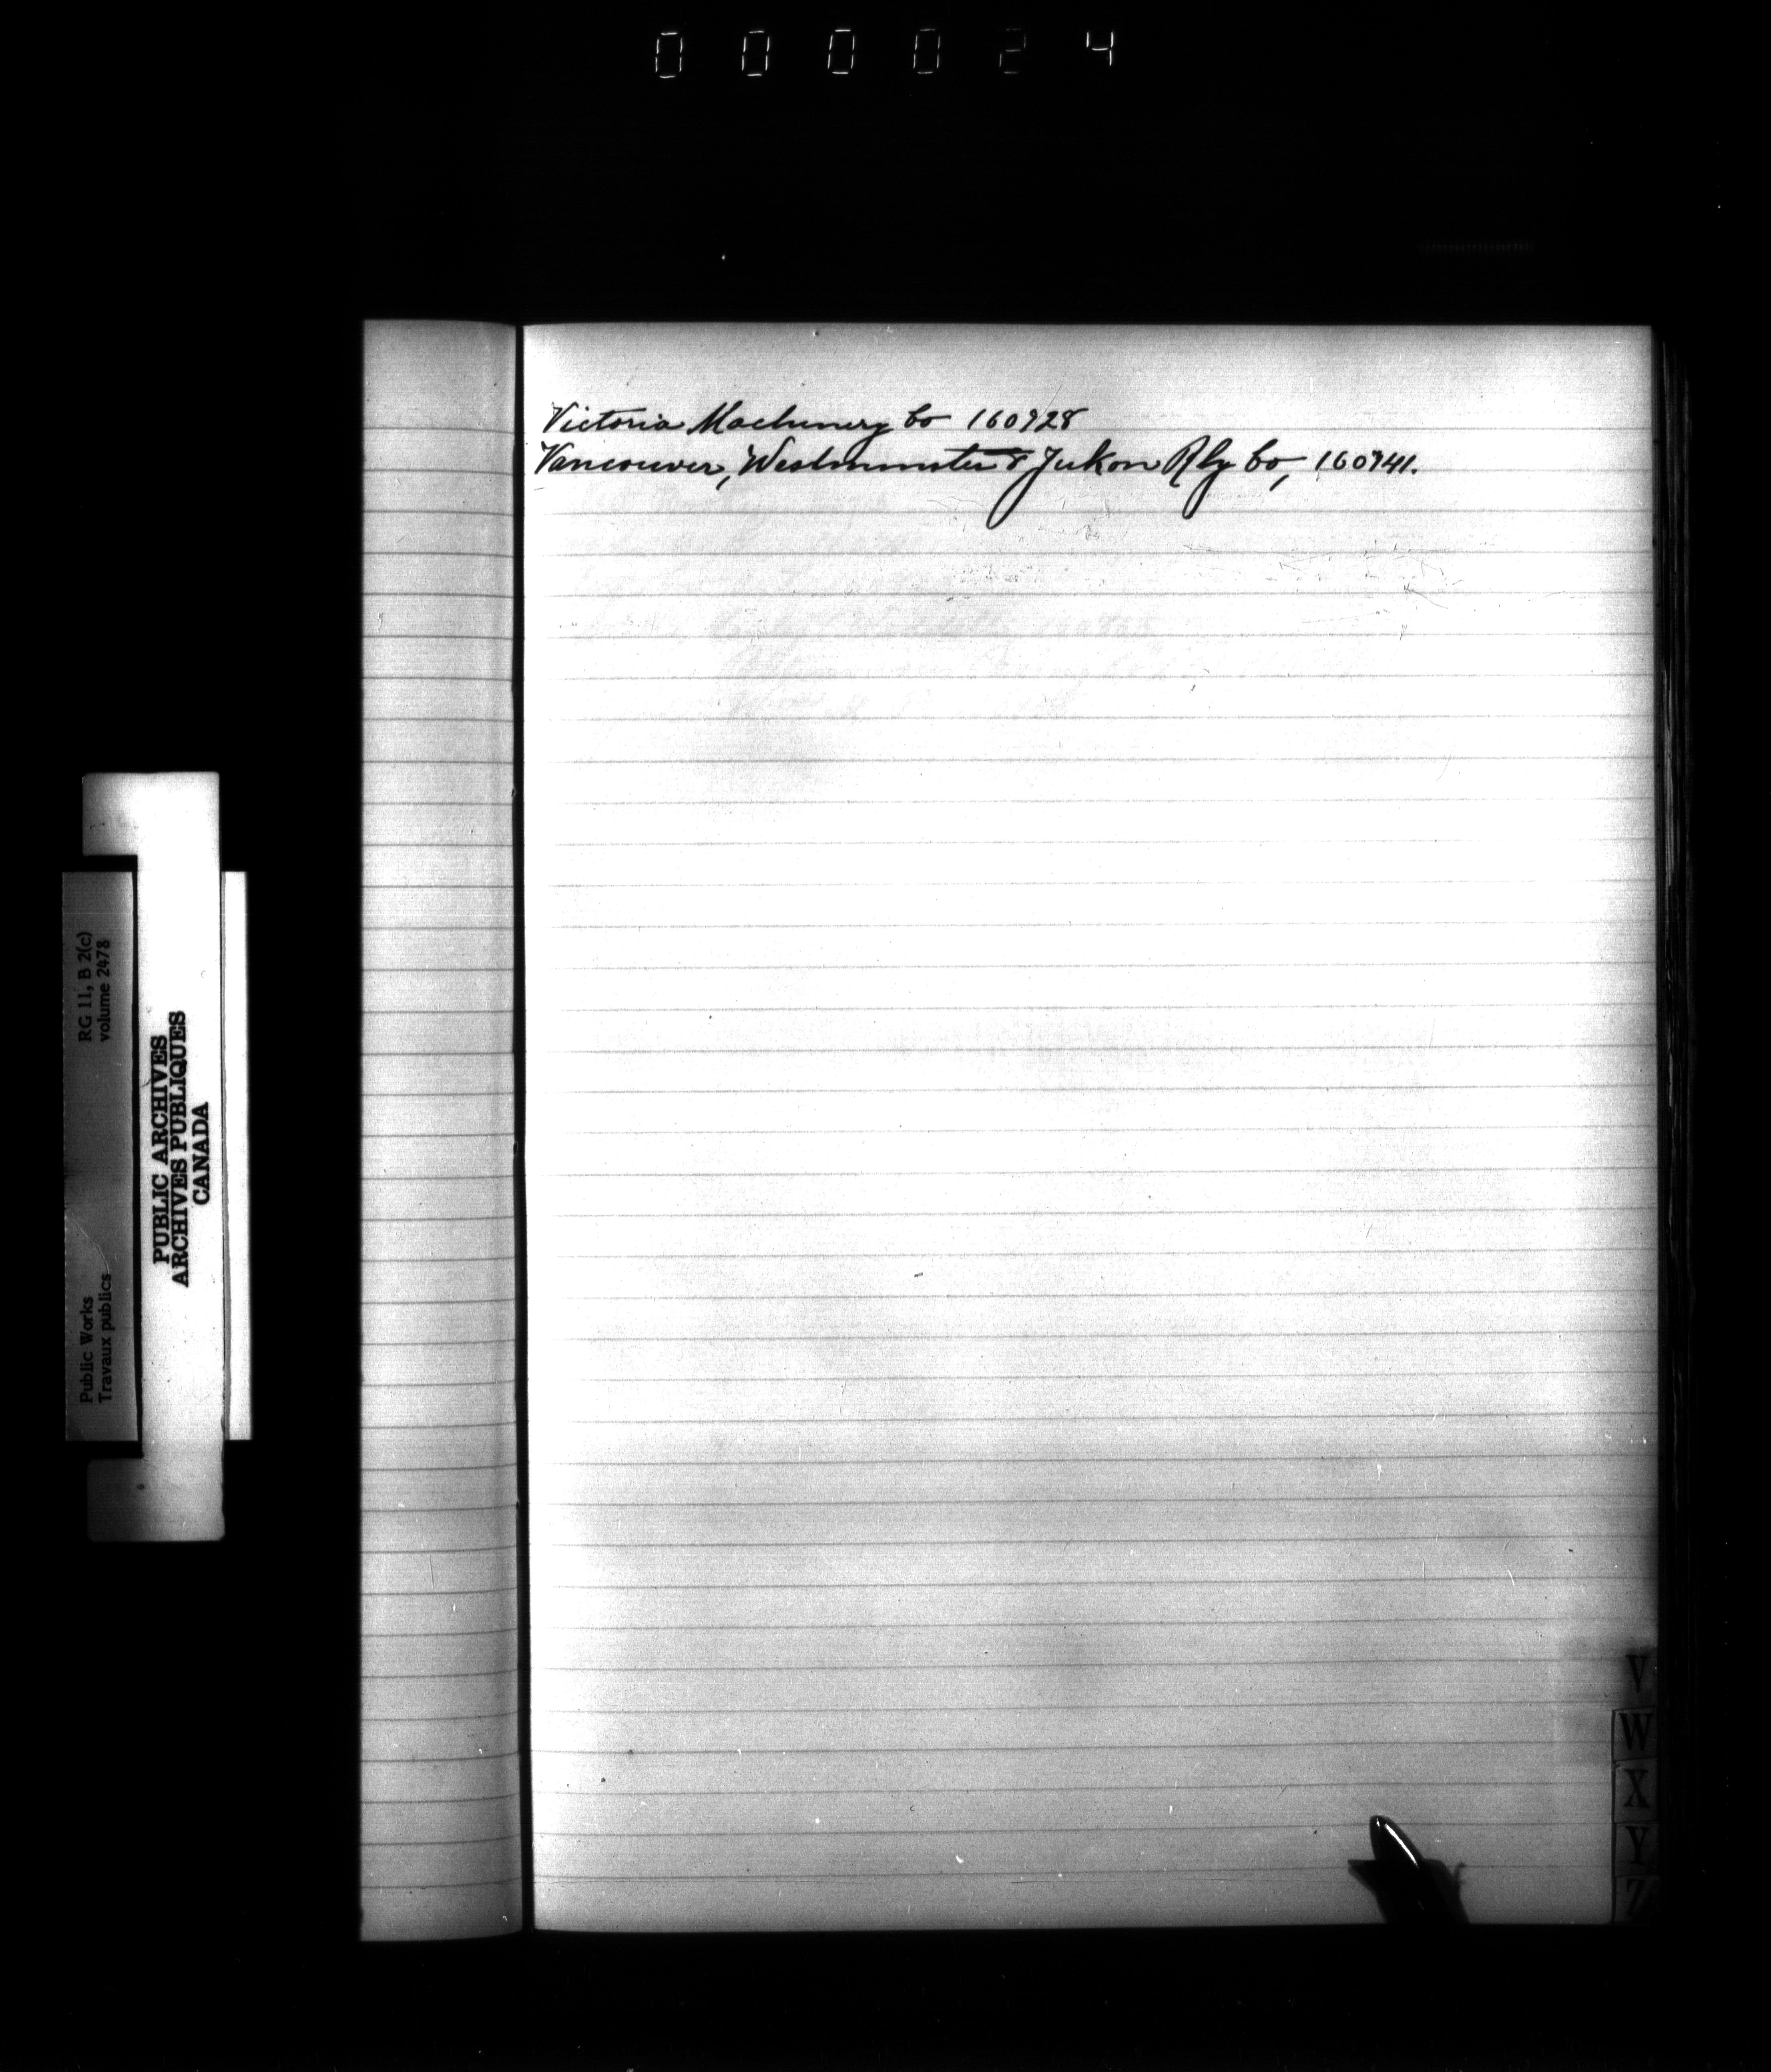 000024
Victoria Machinery Co 160928
Vancouver, Westminster & Yukon Rly Co, 160941.
Public Works
Travaux publics
RG 11, B 2(c)
volume 2478
PUBLIC ARCHIVES
ARCHIVES PUBLIQUES
CANADA
V
W
X
Y
Z